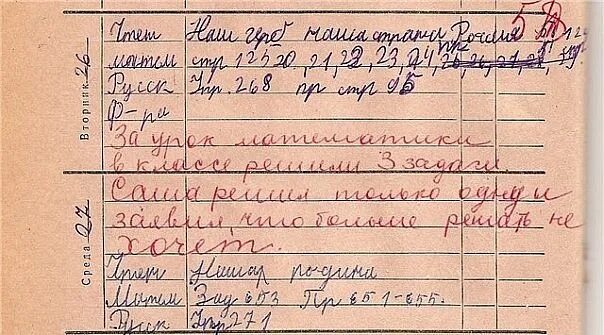 Вторник 26
Чтет Наш герб наша страна Россия 5
матем стр 125 20, 21, 22, 23, 24, пр 25, 26, 27, 28, 29.
Русск Упр. 268 пр стр 95
Ф-ра
За урок математики
в классе решили 3 задачи.
Саша решил только одну и
заявил, что больше решать не
хочет.
Среда 27
Чтет Нашар родина
Матем Зад 653 Пр 651-655.
Русск Упр 271